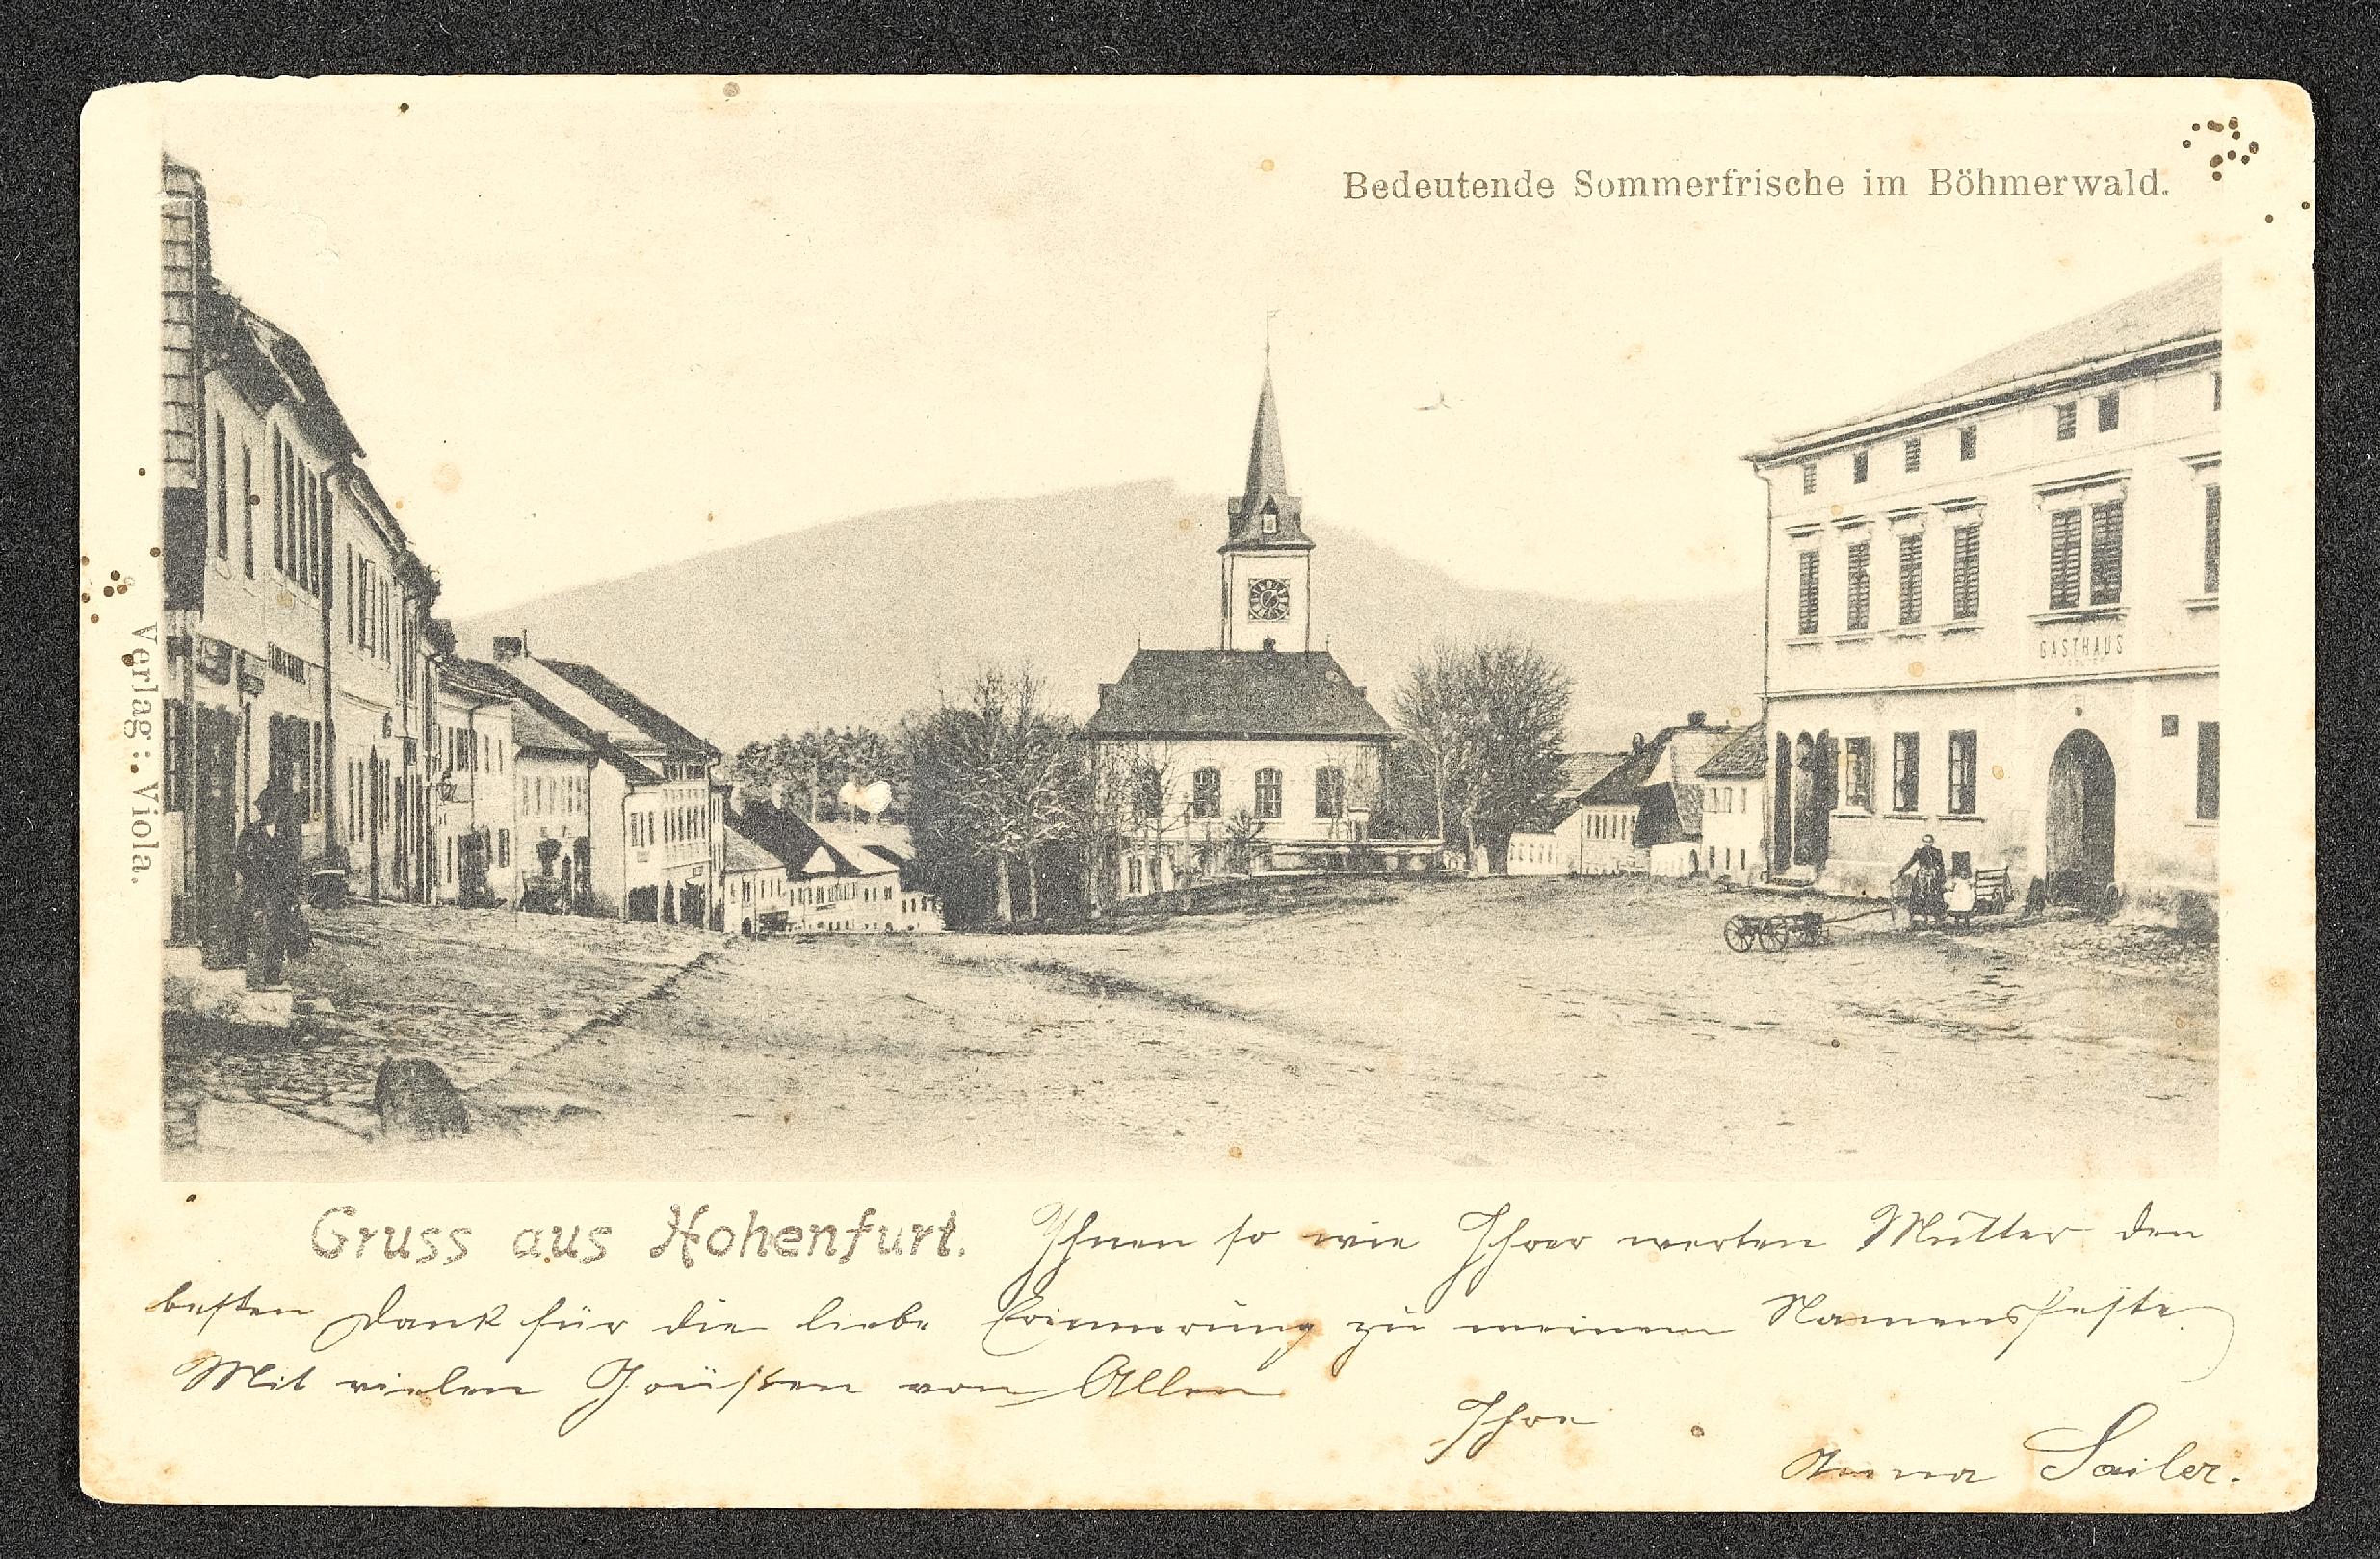 Bedeutende Sommerfrische im Böhmerwald.
GASTHAUS
Verlag: Viola.
Gruss aus Hohenfurt. Ihnen so wie Ihrer werten Mutter den
besten Dank für die liebe Erinnerung zu meinem Namensfeste.
Mit vielen Grüßen von Allen
Ihre
Anna Sailer.